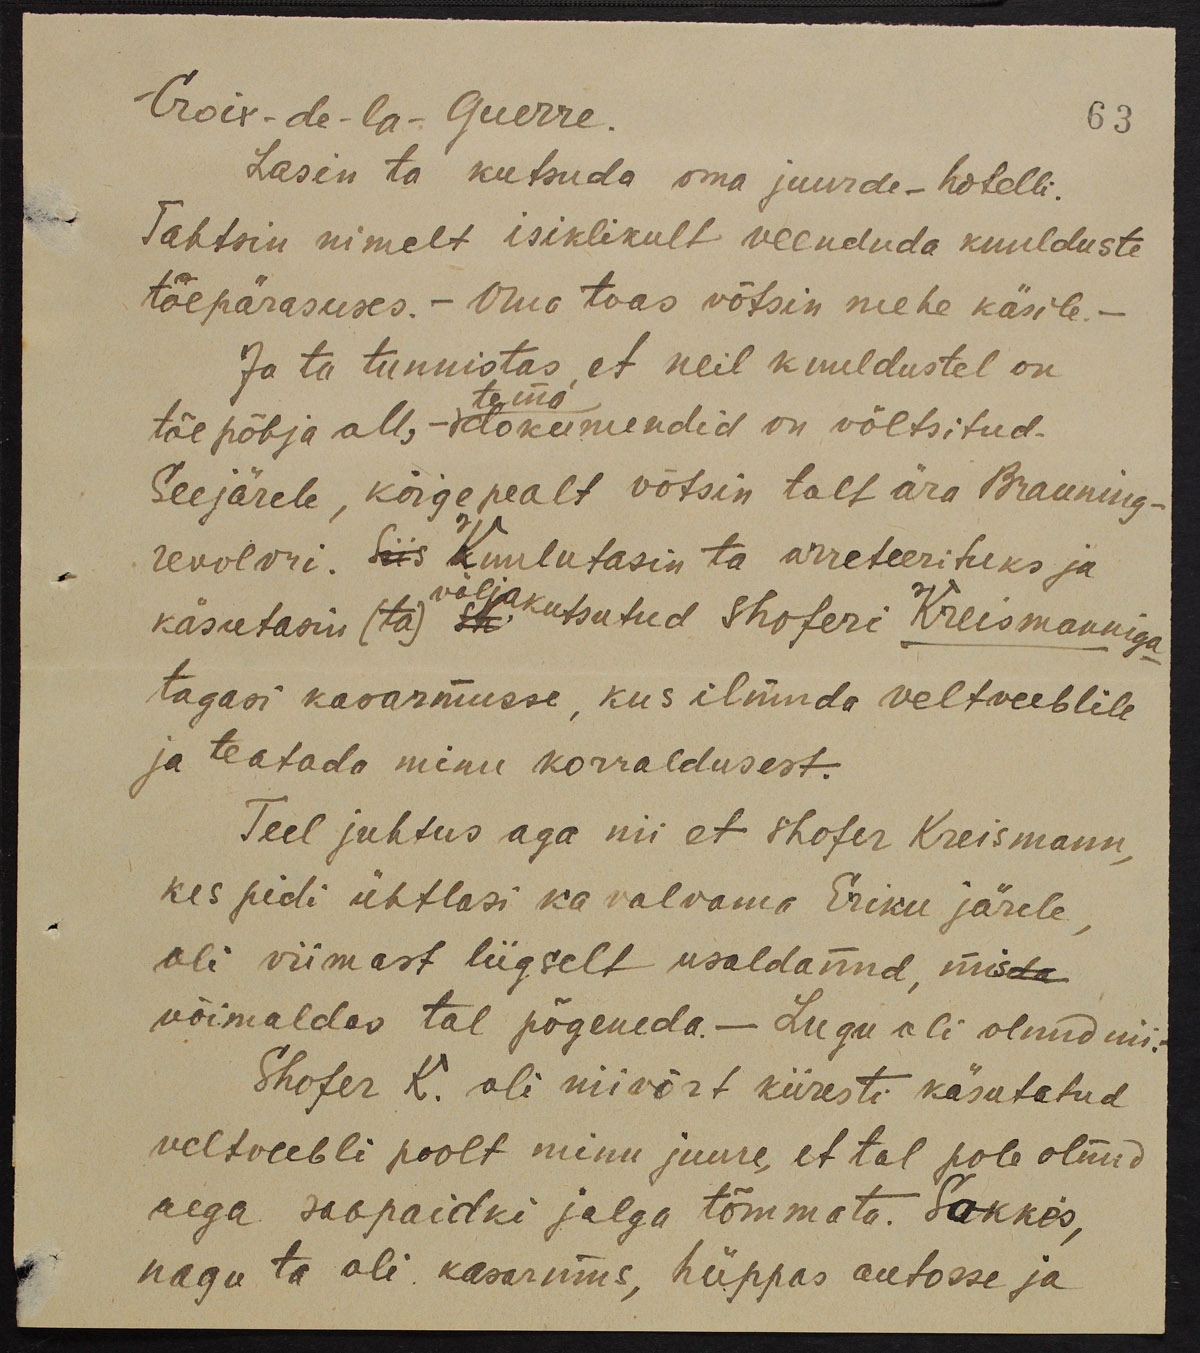 Croix-de-la-Guerre.
63
Lasin ta kutsuda oma juurde - hotelli.
Tahtsin nimelt isiklikult veenduda kuulduste
tõepärasuses. - Oma toas võtsin mehe käsile. -
Ja ta tunnistas, et neil kuuldustel on
tõepõhja all, - tema dokumendid on võltsitud.
Seejärele, kõigepealt võtsin talt ära Brauning-
revolvri. Siis Kuulutasin ta arreteerituks ja
käsutasin (ta) sh. väljakutsutud shoferi Kreismanniga
tagasi kasarmusse, kus ilmuda veltveeblile
ja teatada minu korraldusest.
Teel juhtus aga nii et shofer Kreismann,
kes pidi ühtlasi ka valvama Eriku järele,
oli viimast liigselt usaldannud, mis da
võimaldas tal põgeneda. - Lugu oli olnud nii. -
Shofer K. oli niivõrt kiiresti käsutatud
veltveebli poolt minu juure, et tal pole olnud
aega saapaidki jalga tõmmata. Sokkis,
nagu ta oli kasarmus, hüppas autosse ja